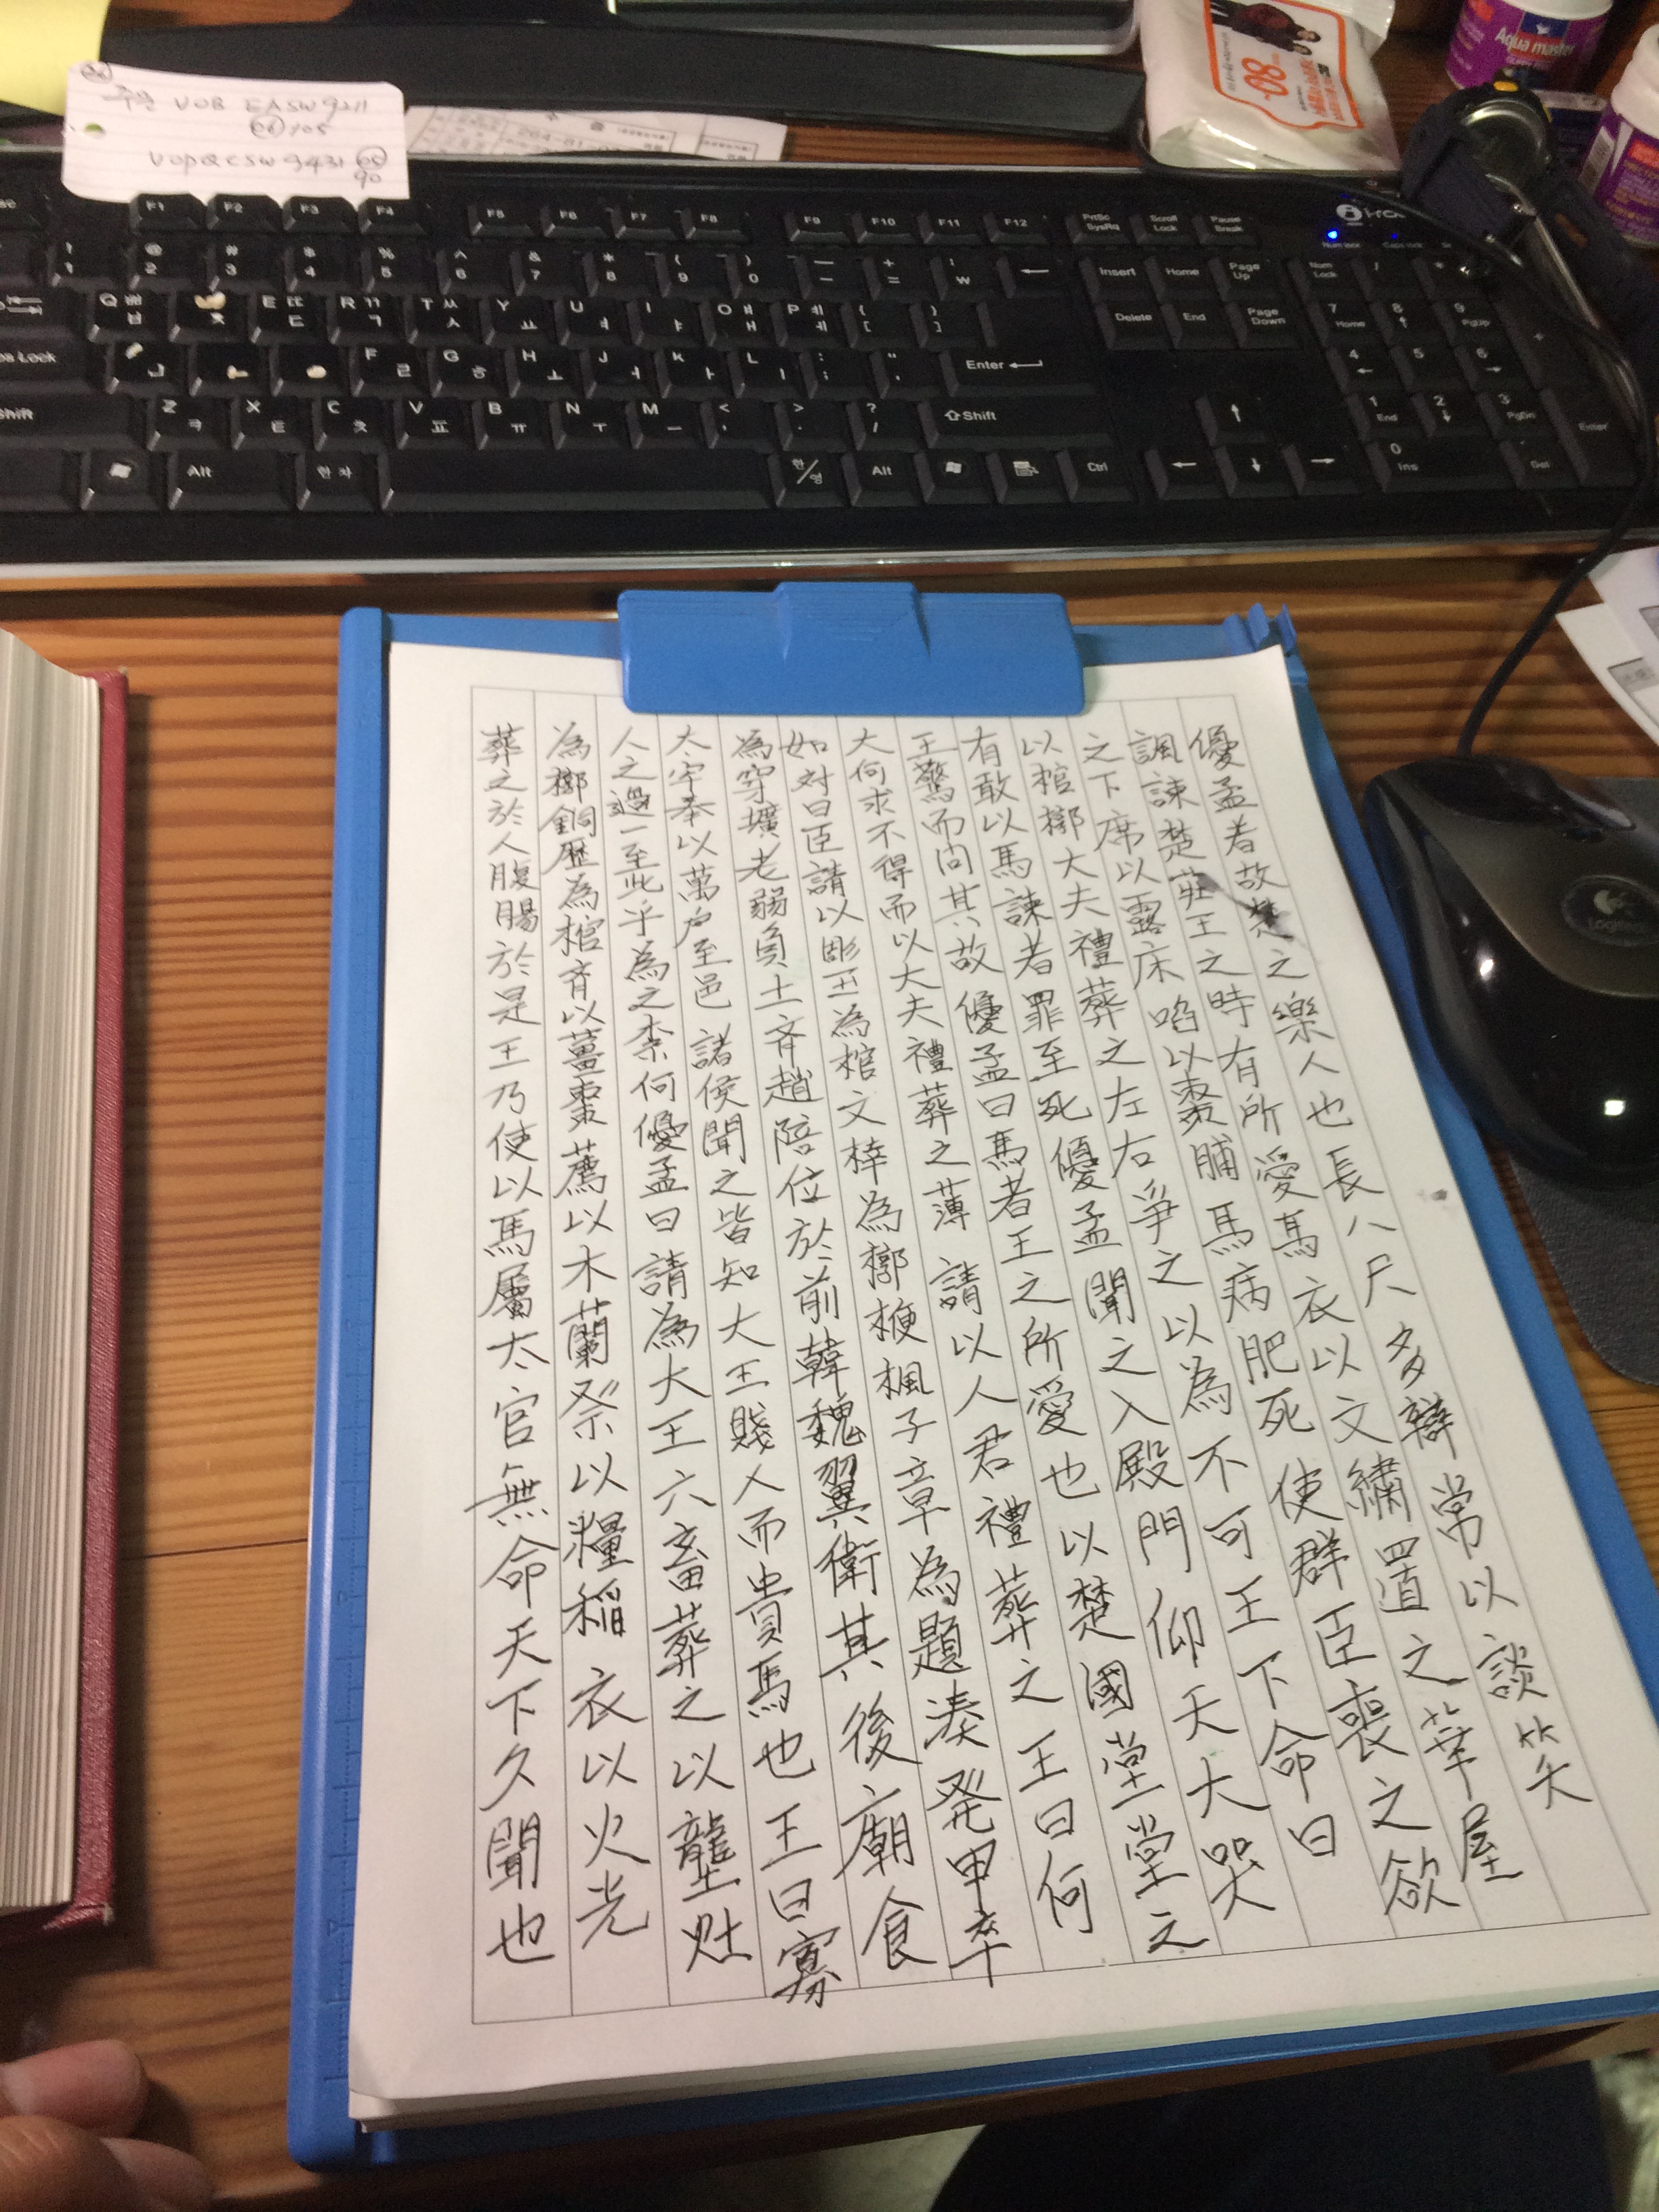 주문 UOB EASW9211
105
UOPQCSW9431
90
264-81-0
80
Aqua master
i-roc
F1 F2 F3 F4 F5 F6 F7 F8 F9 F10 F11 F12 PrtSc SysRq Scroll Lock Pause Break
Num lock Caps lock
! 1 @ 2 # 3 $ 4 % 5 ^ 6 & 7 * 8 ( 9 ) 0 — - + = ₩ ← Insert Home Page Up Num Lock / *
Q ㅃ ㅂ ㅈ E ㄸ ㄷ R ㄲ ㄱ T ㅆ ㅅ Y ㅛ U ㅕ I ㅑ O ㅒ ㅐ P ㅖ ㅔ { [ } ] Delete End Page Down 7 Home 8 ↑ 9 PgUp +
ps Lock F ㄹ G ㅎ H ㅗ J ㅓ K ㅏ L ㅣ : ; " ' Enter 4 ← 5 6 →
Shift Z ㅋ X ㅌ C ㅊ V ㅍ B ㅠ N ㅜ M ㅡ < , > . ? / ⇧Shift ↑ 1 End 2 ↓ 3 PgDn Enter
Alt 한자 한/영 Alt Ctrl ← ↓ → 0 Ins Del
Logitech
優孟者故楚之樂人也長八尺多辯常以談笑
諷諫楚莊王之時有所愛馬衣以文繡置之華屋
之下席以露床啗以棗脯馬病肥死使群臣喪之欲
以棺槨大夫禮葬之左右爭之以為不可王下命曰
有敢以馬諫者罪至死優孟聞之入殿門仰天大哭
王驚而問其故優孟曰馬者王之所愛也以楚國堂堂之
大何求不得而以大夫禮葬之薄請以人君禮葬之王曰何
如對曰臣請以彫玉為棺文梓為槨楩楓子章為題湊發甲卒
為穿壙老弱負土齊趙陪位於前韓魏翼衛其後廟食
太牢奉以萬戶至邑諸侯聞之皆知大王賤人而貴馬也王曰寡
人之過一至此乎為之柰何優孟曰請為大王六畜葬之以壟竈
為槨銅歷為棺齊以薑棗薦以木蘭祭以糧稻衣以火光
葬之於人腹腸於是王乃使以馬屬太官無命天下久聞也